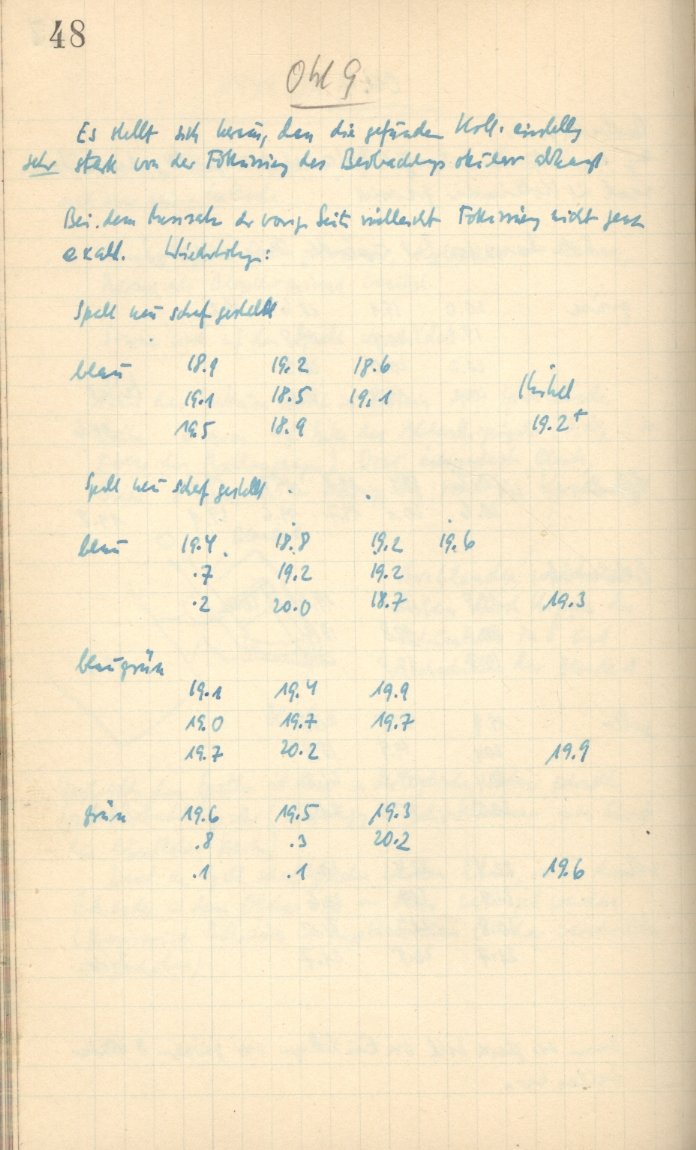 48
Obl 9
Es stellt sich heraus, dass die gefundene Koll. einstellg
sehr stark von der Fokussierung des Beobachtungs okulars abhängt.
Bei dem der vorig. Seite vielleicht Fokussierung nicht ganz
exakt. Wiederholung:
Spalt neu scharf gestellt
blau 18.9 19.2 18.6
19.1 18.5 19.1
19.5 18.9 19.2+
Spalt neu scharf gestellt
blau 19.4 18.8 19.2 19.6
.7 19.2 19.2
.2 20.0 18.7 19.3
blaugrün
19.1 19.4 19.9
19.0 19.7 19.7
19.7 20.2 19.9
grün 19.6 19.5 19.3
.8 .3 20.2
.1 .1 19.6